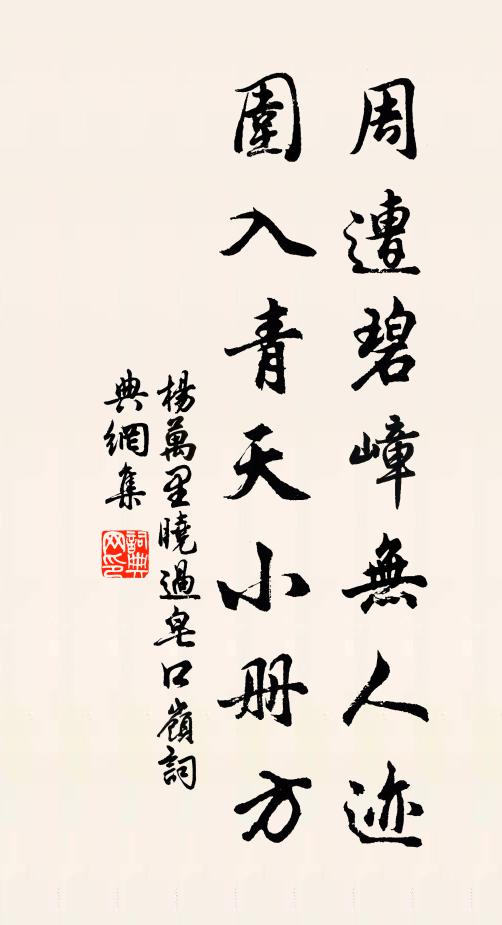 周遭碧嶂無人迹
圍入青天小册方
楊萬里曉過皂口嶺詞
典網集
詞典网印